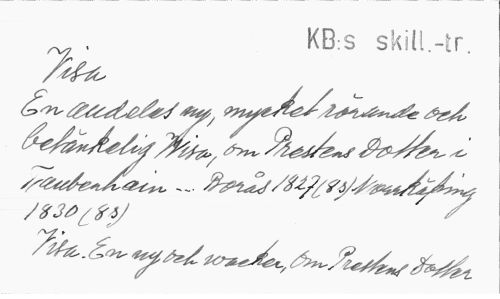 KB:s skill.-tr.
Visa
En aldeles ny, mycket rörande och
betänkelig Wisa, om Prestens Dotter i
Taubenhain -- Borås 1827 (8s) Norrköping
1830 (8s)
Visa. En ny och wacker, om Prestens Dotter